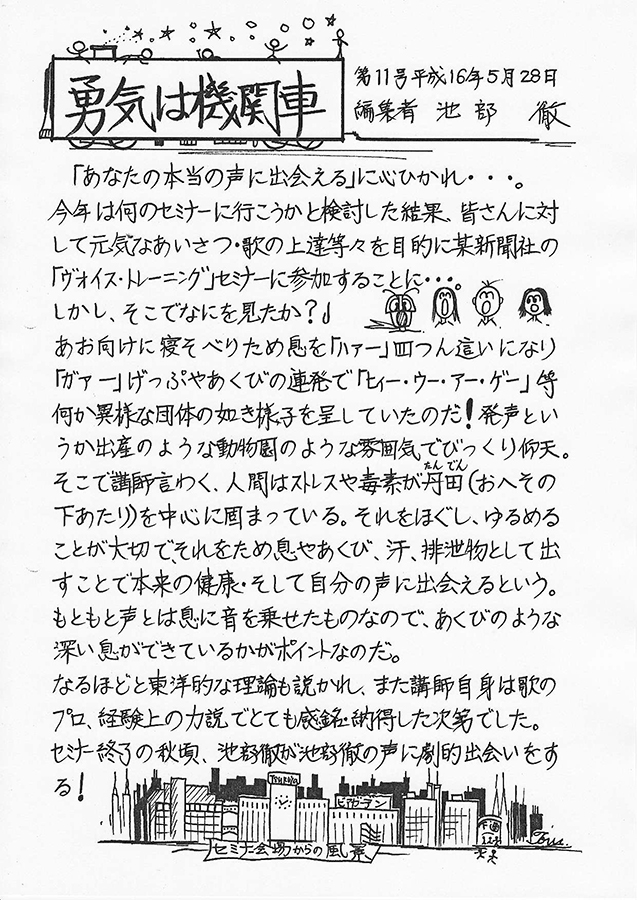 勇気は機関車
第11号平成16年5月28日
編集者 池部 徹
「あなたの本当の声に出会える」に心ひかれ・・・。
今年は何のセミナーに行こうかと検討した結果、皆さんに対
して元気なあいさつ・歌の上達等々を目的に某新聞社の
「ヴォイス・トレーニング」セミナーに参加することに・・・。
しかし、そこでなにを見たか?♩
あお向けに寝そべりため息を「ハァー」四つん這いになり
「ガァー」げっぷやあくびの連発で「ヒィー・ウー・アー・ゲー」等
何か異様な団体の如き様子を呈していたのだ!発声とい
うか出産のような動物園のような雰囲気でびっくり仰天。
そこで講師言わく、人間はストレスや毒素が丹田(おへその
たんでん
下あたり)を中心に固まっている。それをほぐし、ゆるめる
ことが大切で、それをため息やあくび、汗、排泄物として出
すことで本来の健康・そして自分の声に出会えるという。
もともと声とは息に音を乗せたものなので、あくびのような
深い息ができているかがポイントなのだ。
なるほどと東洋的な理論も説かれ、また講師自身は歌の
プロ、経験上の力説でとても感銘・納得した次第でした。
セミナー終了の秋頃、池部徹が池部徹の声に劇的出会いをす
る!
ビアガーデン
セミナー会場からの風景